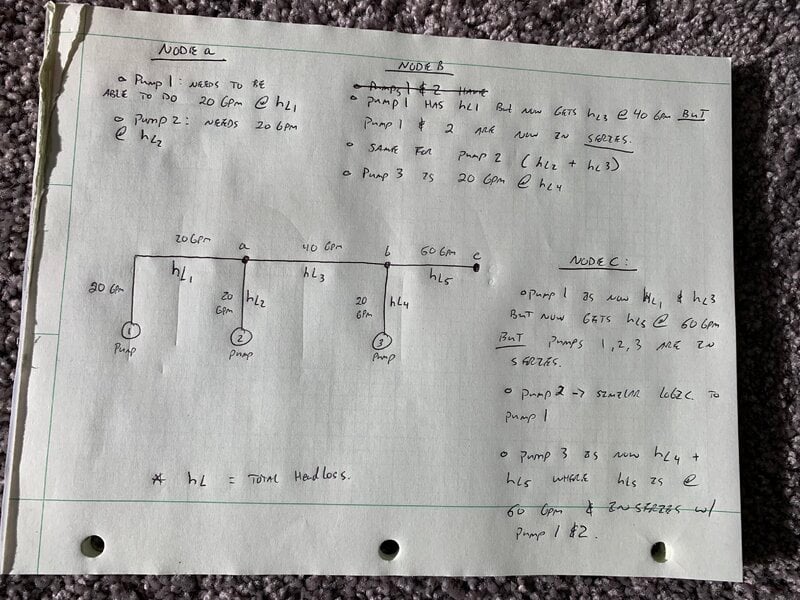 NODE a
o Pump 1: NEEDS TO BE
ABLE TO DO 20 GPM @ hL1
o PUMP 2: NEEDS 20 GPM
@ hL2
NODE B
o PUMPS 1 & 2 HAVE
o PUMP 1 HAS hL1 BUT NOW GETS hL3 @ 40 GPM BUT
PUMP 1 & 2 ARE NOW IN SERIES.
o SAME FOR PUMP 2 (hL2 + hL3)
o PUMP 3 IS 20 GPM @ hL4
20 GPM a 40 GPM b 60 GPM c
hL1 hL3 hL5
20 GPM
20 GPM hL2
20 GPM hL4
1 2 3
PUMP PUMP PUMP
NODE C:
o PUMP 1 IS NOW hL1 & hL3
BUT NOW GETS hL5 @ 60 GPM
BUT PUMPS 1,2,3 ARE IN
SERIES.
o PUMP 2 → SIMILAR LOGIC TO
PUMP 1
o PUMP 3 IS NOW hL4 +
hL5 WHERE hL5 IS @
60 GPM & IN SERIES w/
PUMP 1 & 2.
* hL = TOTAL HeadLoss.